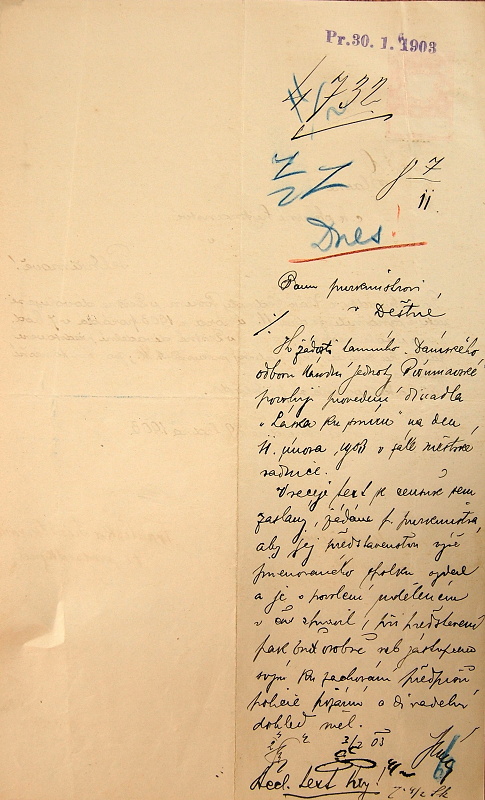 Pr. 30. 1. 1903
732
7
II
Dnes!
Panu purkmistrovi
v Deštné
K žádosti tamního Dámského
odboru Národní jednoty Pošumavské
povoluji provedení divadla
"Láska ku" na den
II. února 1903 v sále městské
radnice.
Vraceje text k censuře sem
zaslaný, žádám p. purkmistra,
aby jej představenstvu výše
jmenovaného spolku vydal
a je o povolení uděleném
v čas zpravil, při představení
pak buď osobně neb zástupcem
svým ku zachování předpisů
policie požární a divadelní
dohled měl.
3/2 03
text hry!